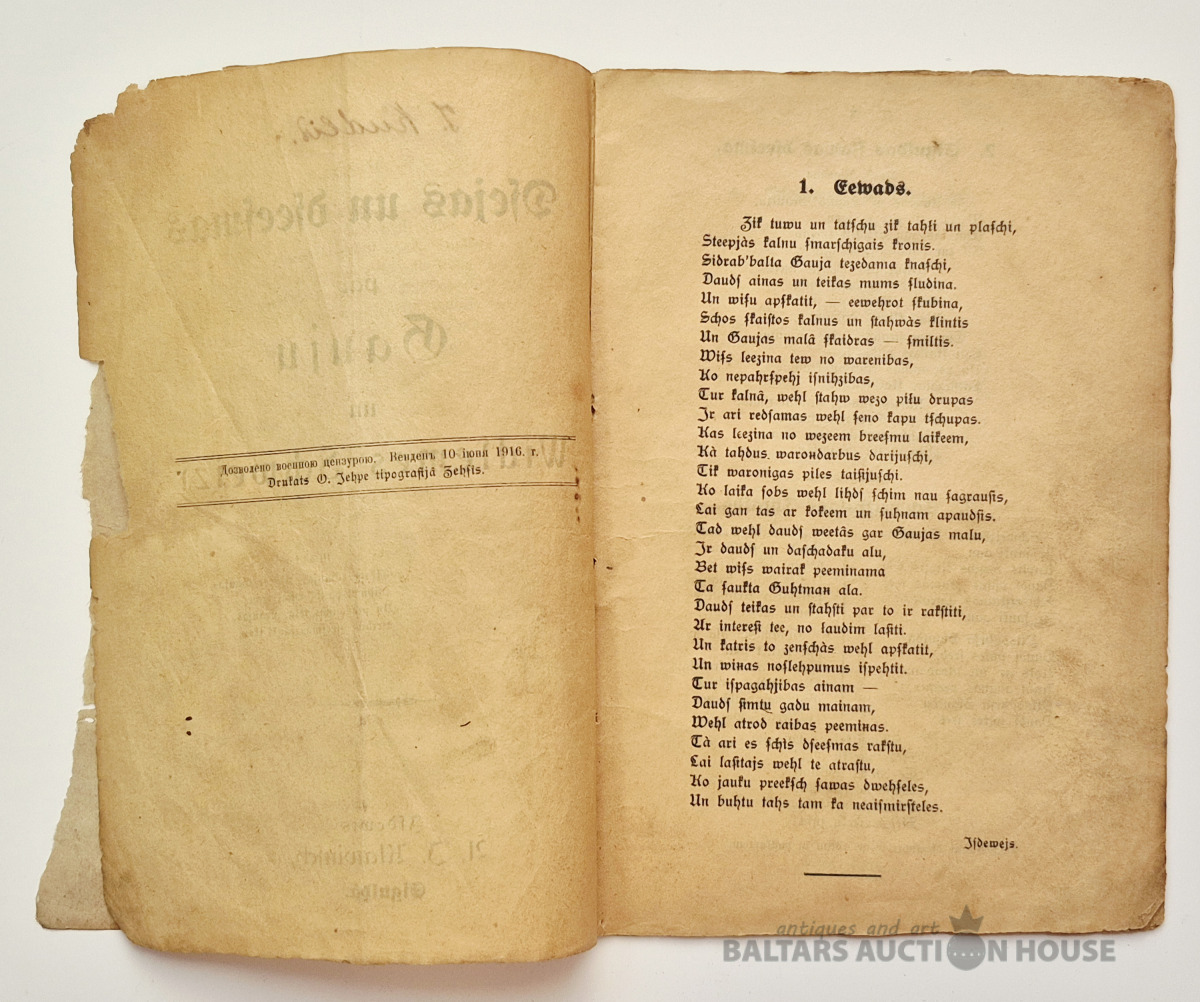 Дозволено военною цензурою. Венденъ, 10 іюня 1916. г.
Drukats O. Jehpe tipografijâ Zehsis.
1. Eewads.
Zik tuwu un tatſchu zik tahli un plaſchi,
Steepjàs kalnu ſmarſchigais kronis.
Sidrab'balta Gauja tezedama knaſchi,
Daudſ ainas un teikas mums ſludina.
Un wiſu apſkatit, — eewehrot ſkubina,
Schos ſkaiſtos kalnus un ſtahwàs klintis
Un Gaujas malâ ſkaidras — ſmiltis.
Wiſs leezina tew no warenibas,
Ko nepahrſpehj iſnihzibas,
Tur kalnâ, wehl ſtahw wezo piłu drupas
Ir ari redſamas wehl ſeno kapu tſchupas.
Kas leezina no wezeem breeſmu laikeem,
Kà tahdus warondarbus darijuſchi,
Tik waronigas piles taiſijuſchi.
Ko laika ſobs wehl lihdſ ſchim nau ſagrauſis,
Lai gan tas ar kokeem un ſuhnam apaudſis.
Tad wehl daudſ weetâs gar Gaujas malu,
Ir daudſ un daſchadaku alu,
Bet wiſs wairak peeminama
Ta ſaukta Guhtmaн ala.
Daudſ teikas un ſtahſti par to ir rakſtiti,
Ar intereſi tee, no laudim laſiti.
Un katris to zenſchàs wehl apſkatit,
Un wiнas noſlehpumus iſpehtit.
Tur iſpagahjibas ainam —
Daudſ ſimtu gadu mainam,
Wehl atrod raibas peemiнas.
Tà ari es ſchìs dſeeſmas rakſtu,
Lai laſitajs wehl te atraſtu,
Ko jauku preekſch ſawas dwehſeles,
Un buhtu tahs tam ka neaiſmirſteles.
Jſdewejs.
antiques and art
BALTARS AUCTION HOUSE